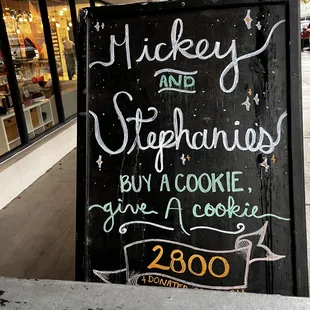 Mickey
AND
Stephanies
BUY A COOKIE,
give A cookie
2800
DONATED